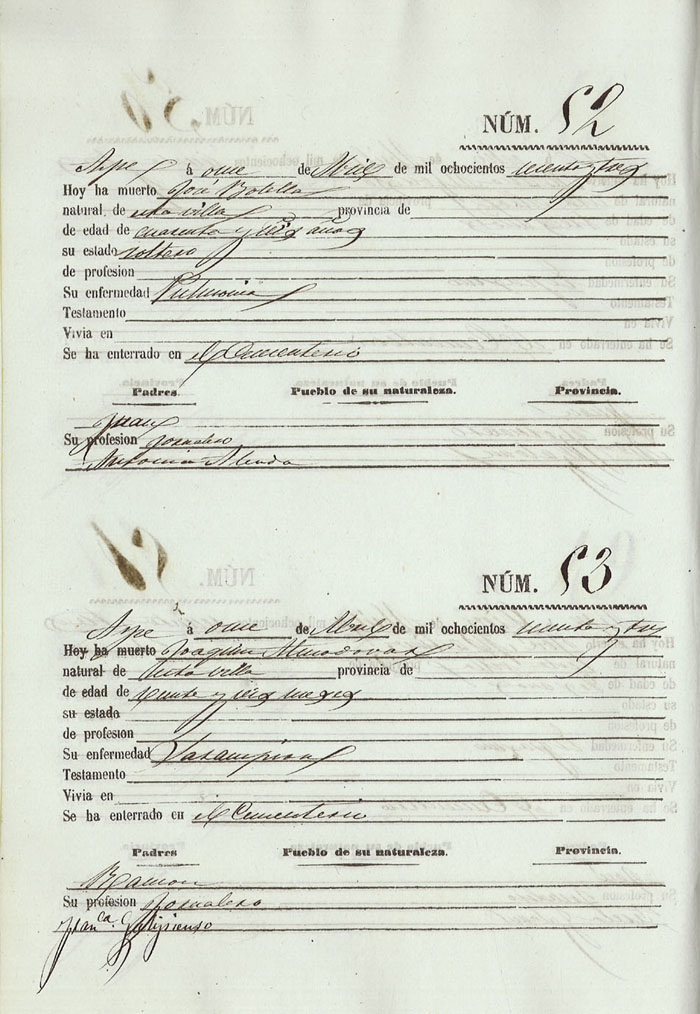 NÚM. 52
Aspe á once de Abril de mil ochocientos
Hoy ha muerto José Botella
natural de esta villa provincia de
de edad de cuarenta y seis años
su estado soltero
de profesion
Su enfermedad Pulmonia
Testamento
Vivia en
Se ha enterrado en el Cementerio
Padres. Pueblo de su naturaleza. Provincia.
Juan
Su profesion Jornalero
Antonia Alenda
NÚM. 53
Aspe á once de Abril de mil ochocientos
Hoy ha muerto Joaquin Almodovar
natural de esta villa provincia de
de edad de veinte y seis meses
su estado
de profesion
Su enfermedad Sarampion
Testamento
Vivia en
Se ha enterrado en el Cementerio
Padres Pueblo de su naturaleza. Provincia.
Ramon
Su profesion Jornalero
Fran.ca